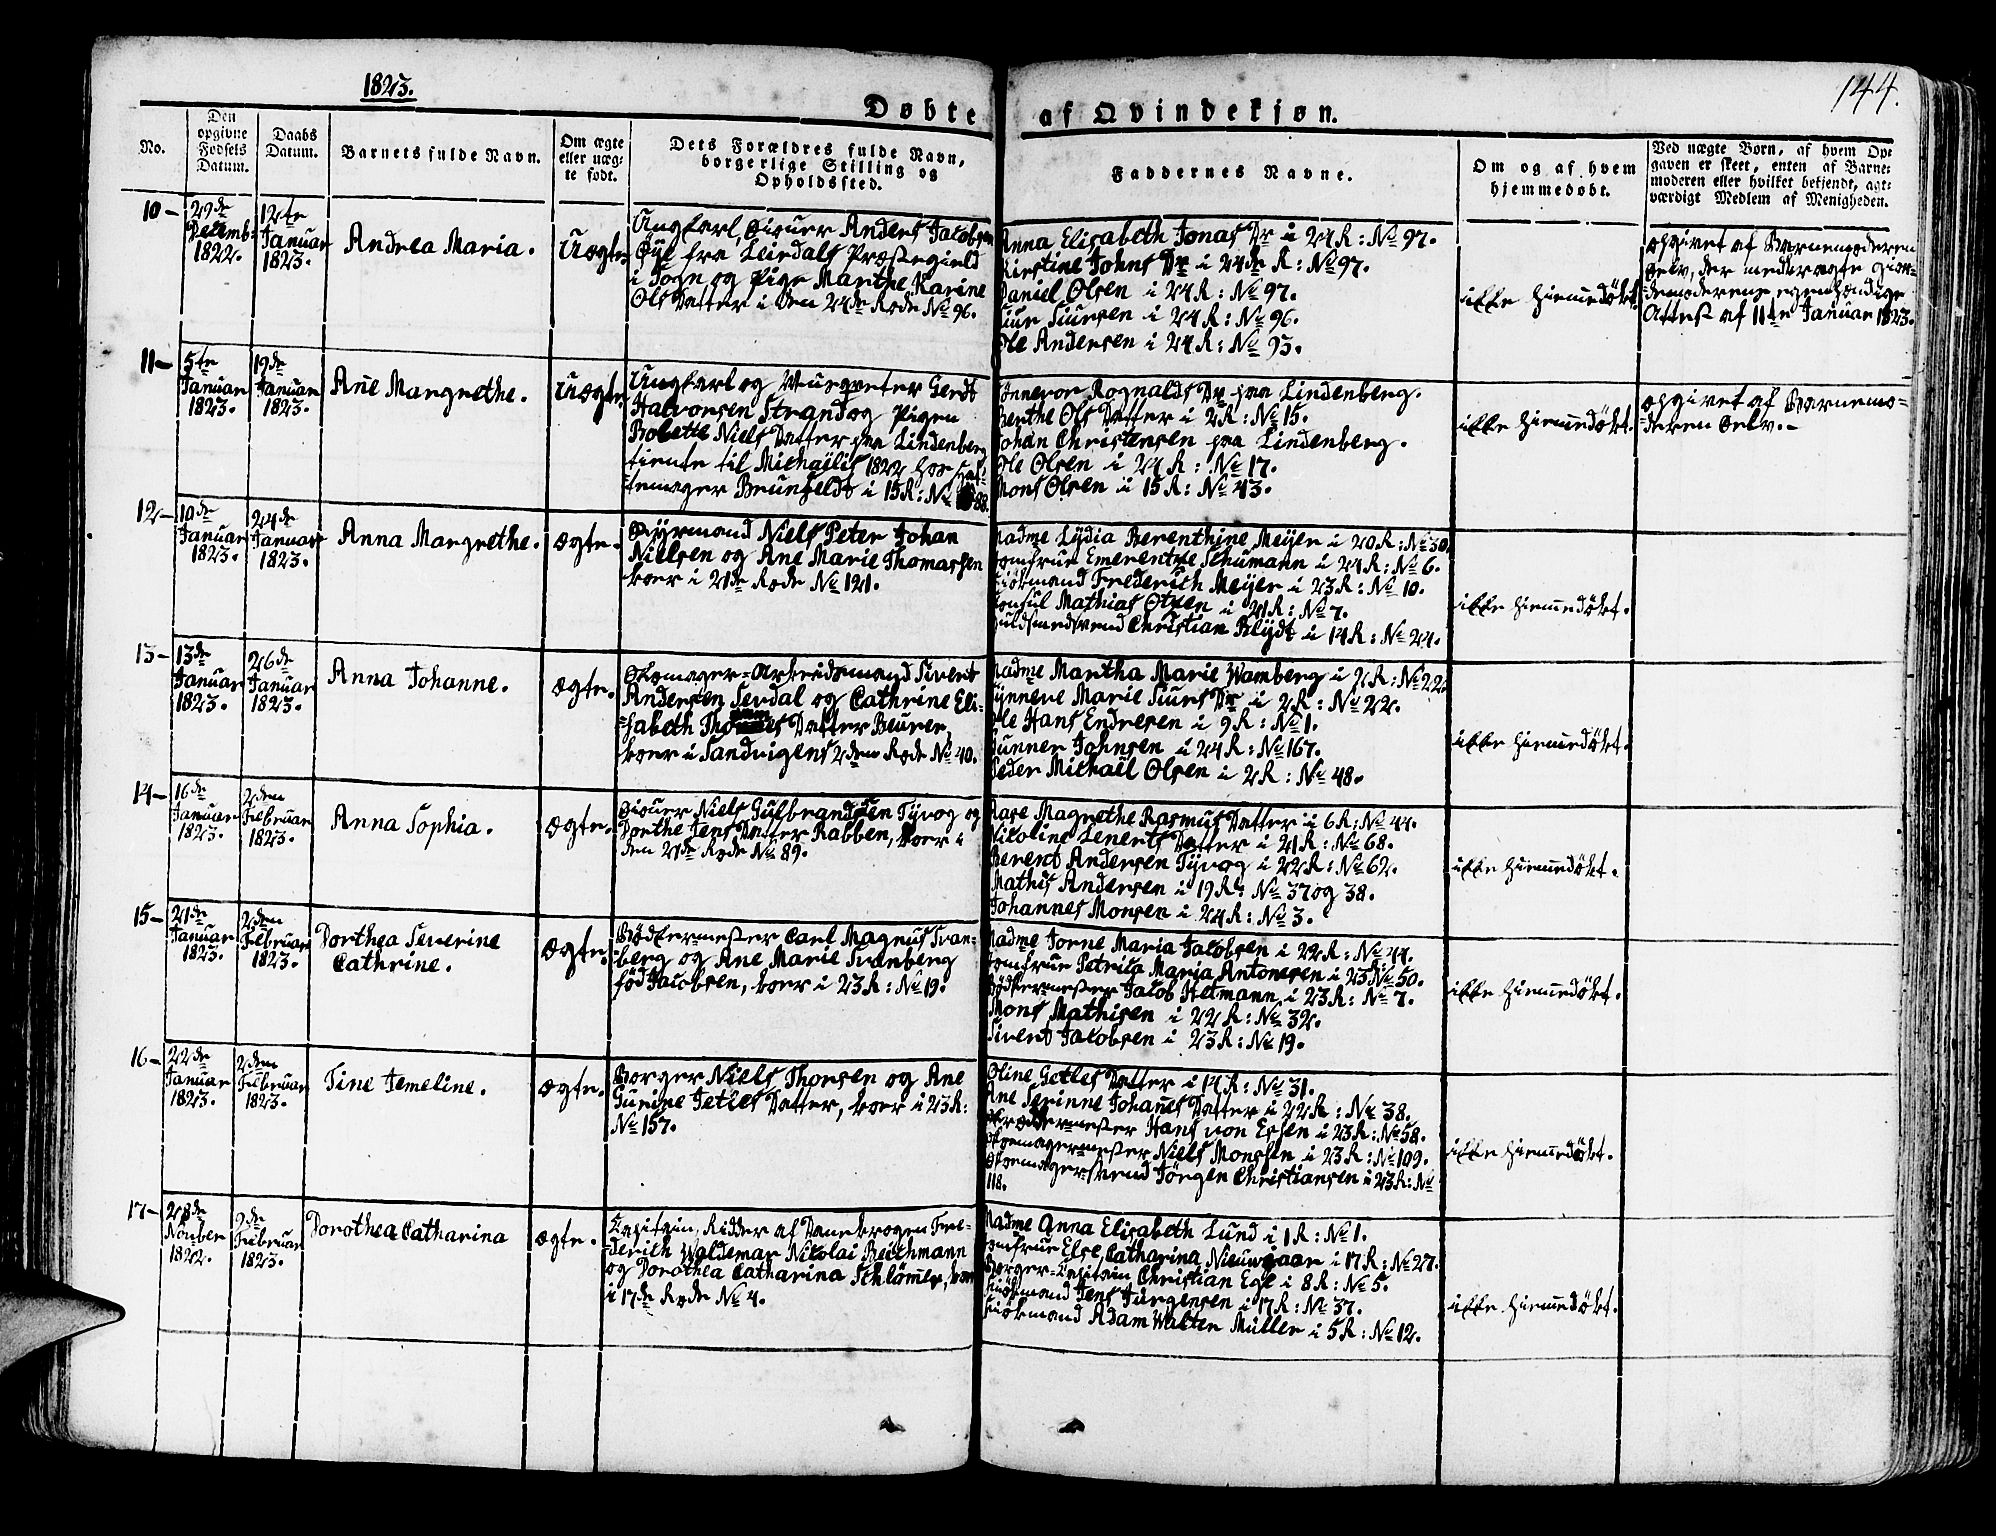 1823.
144.
Døbte af Qvindekjøn.
No.
Den opgivne Fødsels Datum.
Daabs Datum.
Barnets fulde Navn.
Om ægte eller uæg-te født.
Dets Forældres fulde Navn, borgerlige Stilling og Opholdssted.
Faddernes Navne.
Om og af hvem hjemmedøbt.
Ved uægte Børn, af hvem Op-
gaven er skeet, enten af Barne-
moderen eller hvilket bekjendt, agt-
værdigt Medlem af Menigheden.
10-
29de
Decemb:
1822.
12te
Januar
1823.
Andrea Maria.
Uægte.
Ungkarl, Anders Jacobsen
Øyl fra Leirdals Præstegield
i Sogn og Pige Marthe Karine
Ols Datter i den 24de Rode No 96.
Anna Elisabeth Jonas Dr i 24R: No 97.
Kirstine Johns Dr i 24de R: No 97.
Daniel Olsen i 24R: No 97.
Siur Siursen i 24R: No 96.
Ole Andersen i 24R: No 93.
ikke hiemedöbt.
opgivet af Barnemoderen
selv, der medbragte Gior-
demoderens egenhændige
Attest af 11te Januar 1823.
11-
5te
Januar
1823.
19de
Januar
1823.
Ane Margrethe.
Uægte.
Ungkarl og Gerdt
Halvorsen Strand og Pigen
Bolette Niels Datter paa Lindenberg
tiente til Michaÿlis 1822 hos Hat-
temager Brunfeldt i 15R: No 88.
Rognalds Dr paa Lindenberg.
Berthe Ols Datter i 2R: No 15.
Johan Christensen paa Lindenberg.
Ole Olsen i 24R: No 17.
Mons Olsen i 15R: No 43.
ikke hiemedöbt.
opgivet af Barnemo-
deren selv.-
12-
10de
Januar
1823.
24de
Januar
1823.
Anna Margrethe.
Ægte.
Styrmand Niels Peter Johan
Nielsen og Ane Marie Thomassen
boer i 21de Rode No 121.
Madme Lÿdia Berenthine Meÿer i 20R: No 30.
Jomfrue Emerentze Schumann i 24R: No 6.
Kiöbmand Frederich Meÿer i 23R: No 10.
Consul Mathias i 21R: No 7.
Guldsmedsvend Christian Blÿdt i 14R: No 24.
ikke hiemedöbt.
13-
13de
Januar
1823.
26de
Januar
1823.
Anna Johanne.
Ægte.
Skomager-Arbeidsmand Sivert
Andersen Sevdal og Cathrine Eli-
sabeth Thomes Datter Beurer,
boer i Sandvigens 2den Rode No 40.
Madme Martha Marie Wamberg i 2R: No 22.
Sÿnneve Marie Siurs Dr i 2R: No 22.
Ole Hans Endresen i 9R: No 1.
Gunner Johnsen i 24R: No 167.
Peder Michaël Olsen i 2R: No 48.
ikke hiemedöbt.
14-
16de
Januar
1823.
2den
Februar
1823.
Anna Sophia.
Ægte.
Niels Gulbrandsen Tÿvog og
Dorthe Jens Datter Rabben, boer i
den 21de Rode No 89.
Aase Magnethe Rasmus Datter i 6R: No 44.
Nicoline Lenerts Datter i 21R: No 68.
Berent Andersen Tÿvog i 22R: No 62.
Mathis Andersen i 19R: No 37 og 38.
Johannes Monsen i 24R: No 3.
ikke hiemedöbt.
15-
21de
Januar
1823.
2den
Februar
1823.
Dorthea Severine
Cathrine.
Ægte.
Bödkermester Carl Magnus Svan-
berg og Ane Marie Svanberg
född Jacobsen, boer i 23R: No 19.
Madme Jorne Maria Jacobsen i 22R: No 44.
Jomfrue Petrica Maria Antonesen i 23 No 50.
Bödkermester Jacob Hetmann i 23R: No 7.
Mons Mathisen i 22R: No 32.
Sivert Jacobsen i 23R: No 19.
ikke hiemedöbt.
16-
22de
Januar
1823.
2den
Februar
1823.
Sine Jemeline.
Ægte.
Borger Niels Thorsen og Ane
Gurine Jetles Datter, boer i 23R:
No 157.
Oline Getles Datter i 14R: No 31.
Ane Serinne Johanes Datter i 22R: No 38.
Skrædermester Hans von Essen i 23R: No 58.
Skomagermester Niels Monssen i 23R: No 109.
Skomagersvend Jörgen Christiansen i 23R: No
118.
ikke hiemedöbt.
17-
28de
Novber
1822.
9de
Februar
1823.
Dorothea Catharina
Ægte.
Capitain, Ridder af Danebrogen Fre-
derich Waldemar Nicolai Beichmann
og Dorothea Catharina Schlömer, boer
i 17de Rode No 4.
Madme Anna Elisabeth Lund i 1R: No 1.
Jomfrue Else Catharina Nieuwejaar i 17R: No 27.
Borger-Capitain Christian Ege i 8R: No 5.
Kiöbmand Jens Jurgensen i 17R: No 37.
Kiöbmand Adam Walter Müller i 5R: No 12.
ikke hiemedöbt.